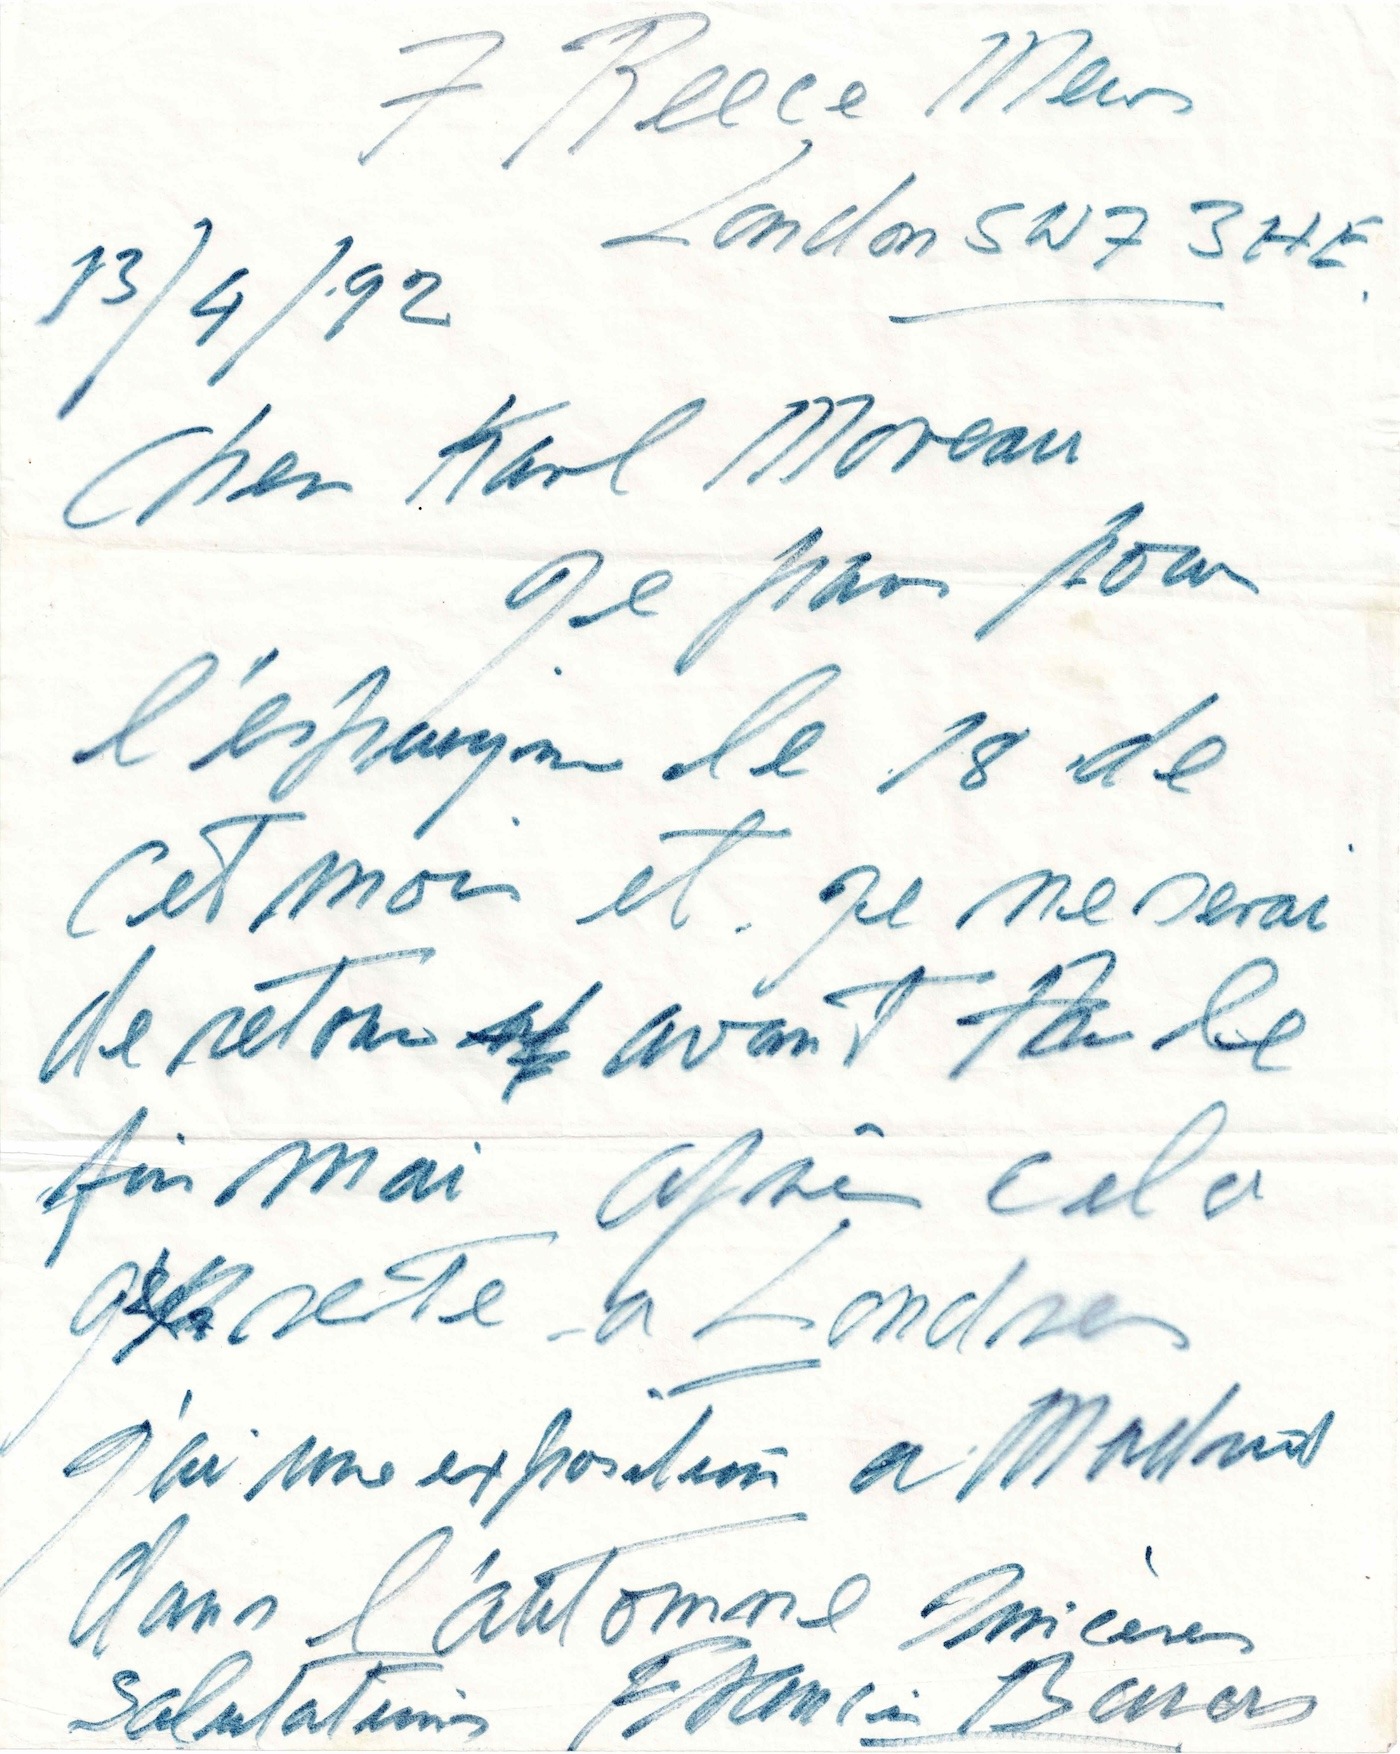 7 Reece Mews
London SW7 3HE.
13/4/92
Cher Karl Moreau
Je pars pour
l'éspagne le 18 de
cet mois et je ne serai
de retour avant le
fin mai après cela
je reste a Londres
j'ai une exposition a Madrid
dans l'automne Sincères
salutations Francis Bacon